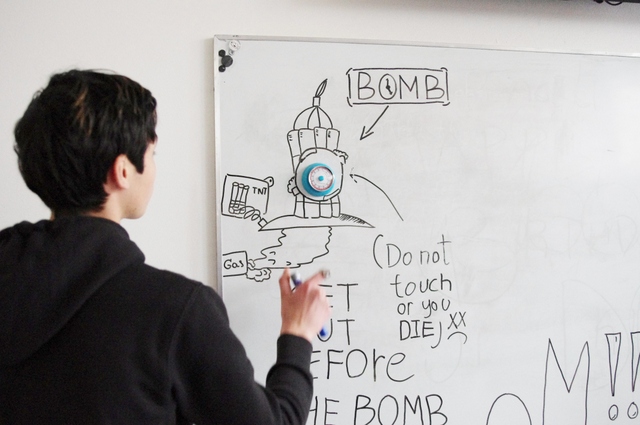 BOMB
TNT
Gas
(Do not
touch
or you
DIE) XX
ET
UT
EFORE
HE BOMB
M!!